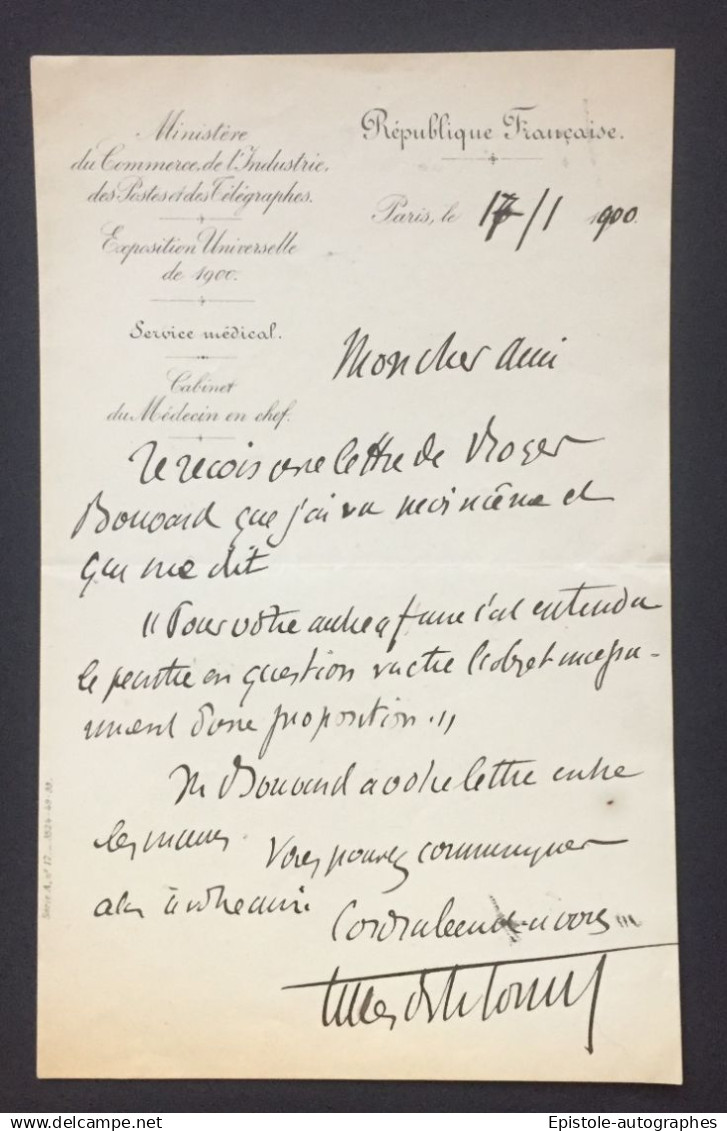 Ministère
du Commerce, de l'Industrie,
des Postes et des Télégraphes.
Exposition Universelle
de 1900.
Service médical.
Cabinet
du Médecin en chef.
République Française.
Paris, le 17/1 1900.
Mon cher ami
Je reçois une lettre de Roger
Bouvard que j'ai vu moi même et
qui me dit
"Pour votre autre affaire c'est entendu
le peintre en question sera l'objet
d'une proposition."
M Bouvard a votre lettre entre
les mains. Vous pouvez communiquer
à votre ami.
Cordialement à vous
Série A, n° 17.
delcampe.net
Epistole-autographes